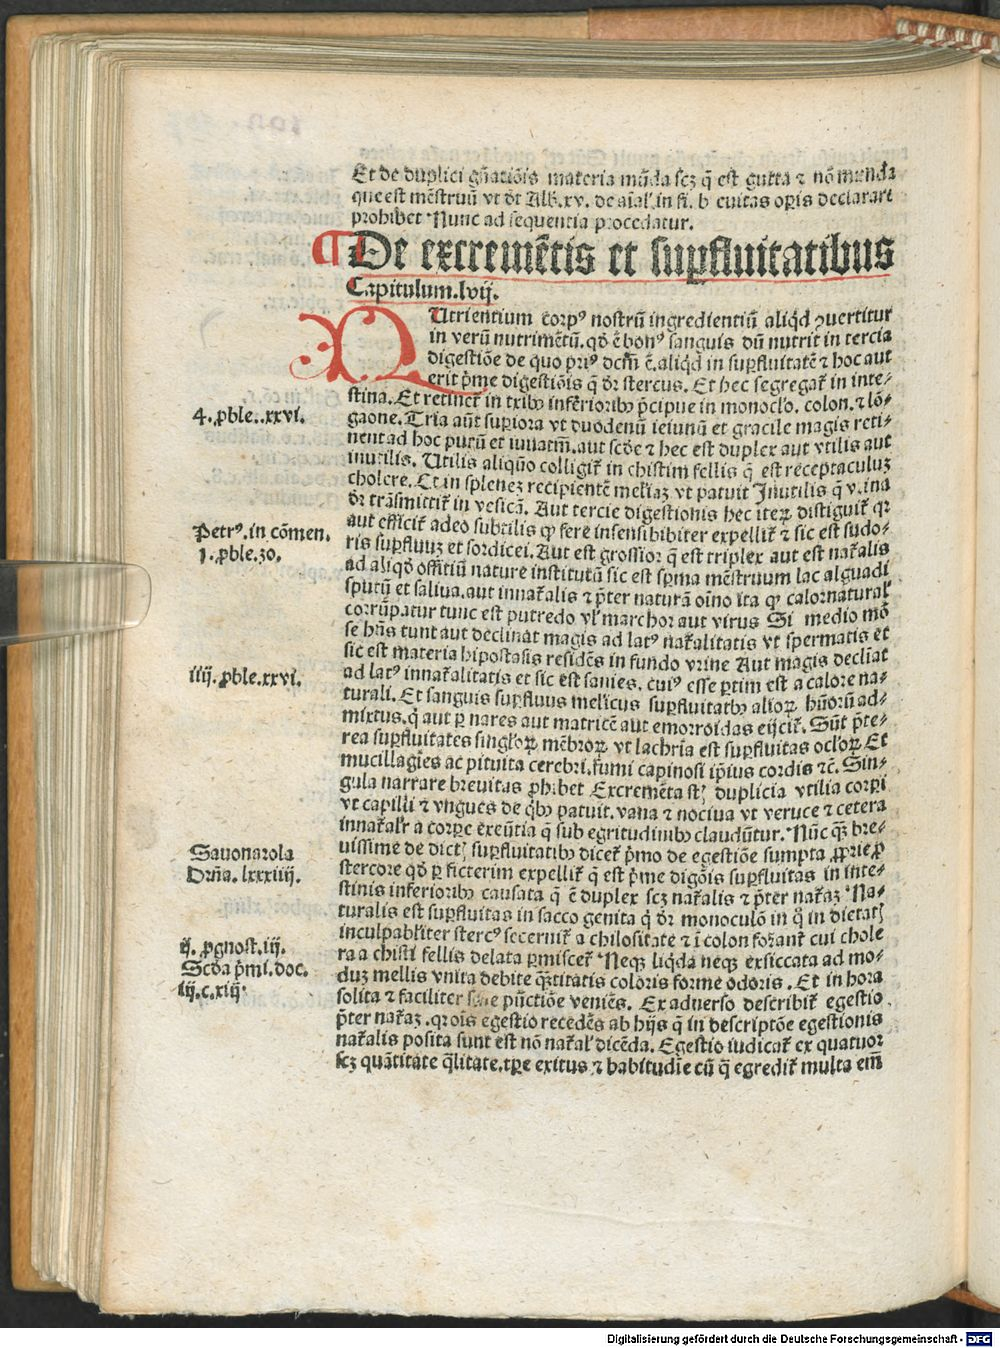 Et de duplici gn̄atiōis materia mūda scz q̄ est gutta ⁊ nō munda
que est mēstruū vt dt Alb. xv. de aīal. in fi. b euitas opis declarari
prohibet Nunc ad sequentia procedatur.
¶ De excremētis et supfluitatibus
Capitulum.lvij.
NUtrientium corpꝰ nostrū ingredientiū aliqd ꝯuertitur
in verū nutrimētū. qd ē bonꝰ sanguis dū nutrit in tercia
digestiōe de quo priꝰ dcm̄ ē. aliqd in supfluitatē ⁊ hoc aut
erit p̄me digestiōis q̄ dr stercus. Et hec segregat̄ in inte⸗
stina. Et retinet̄ in tribꝰ inferioribꝰ p̄cipue in monoclo. colon. ⁊ lō⸗
gaone. Tria aūt supiora vt duodenū ieiunū et gracile magis reti⸗
nent ad hoc purū et iuuatm̄. aut scde ⁊ hec est duplex aut vtilis aut
inutilis. Utilis aliqn̄o colligit̄ in chistim fellis q̄ est receptaculuz
cholere. Et in splenez recipientē meliaz vt patuit Inutilis q̄ vrina
dr trāsmittit̄ in vesicā. Aut tercie digestionis hec iteꝝ distiguit̄ qr
aut efficit̄ adeo subtilis ꝙ fere insensibibiter expellit̄ ⁊ sic est sudo⸗
ris supfluuz et sordicei. Aut est grossior q̄ est triplex aut est nat̄alis
ad aliqd offitiū nature institutū sic est spma mēstruum lac alguadi
sputū et saliua. aut innat̄alis ⁊ p̄ter naturā oīno ita ꝙ calor natural
corrūpatur tunc est putredo vl marchor aut virus Si medio mō
se hn̄s tunt aut declinat magis ad latꝰ nat̄alitatis vt spermatis et
sic est materia hipostasis residēs in fundo vrine Aut magis decliāt
ad latꝰ innat̄alitatis et sic est sanies. cuiꝰ esse ptim est a calore na⸗
turali. Et sanguis supfluus melicus supfluitatbꝰ alioꝝ hūorū ad⸗
mixtus. q̄ aut p nares aut matricē aut emorroidas eijcit̄. Sūt p̄te⸗
rea supfluitates singloꝝ mēbroꝝ vt lachria est supfluitas ocloꝝ Et
mucillagies ac pituita cerebri. fumi capinosi ip̄ius cordis ⁊c̄. Sin⸗
gula narrare breuitas phibet Excremēta st̄ duplicia vtilia corpi
vt capilli ⁊ vngues de qbꝰ patuit. vana ⁊ nociua vt veruce ⁊ cetera
innat̄alr a corpe exeūtia q̄ sub egritudinibꝰ claudūtur. Nūc qz bre⸗
uissime de dictꝭ supfluitatibꝰ dicet̄ p̄mo de egestiōe sumpta pprie p
stercore qd p ficterim expellit̄ q̄ est p̄me digōis supfluitas in inte⸗
stinis inferioribꝰ causata q̄ ē duplex scz nat̄alis ⁊ p̄ter nat̄az Na⸗
turalis est supfluitas in sacco genita q̄ dr monoculō in q̄ in dietatꝭ
inculpabliter stercꝰ secernit̄ a chilositate ⁊ ī colon forant̄ cui chole
ra a chisti fellis delata pmiscet̄ Neqz liqda neqz exsiccata ad mo⸗
duz mellis vnita debite qz̄titatis coloris forme odoris. Et in hora
solita ⁊ faciliter sine pūctiōe veniēs. Ex aduerso describit̄ egestio
p̄ter nat̄az. qr oīs egestio recedēs ab hijs q̄ in descriptōe egestionis
nat̄alis posita sunt est nō nat̄al dicēda. Egestio iudicat̄ ex quatuor
scz quātitate q̄litate. tpe exitus ⁊ habitudīe cū q̄ egredit̄ multa em̄
4. pble..xxvi.
Petrꝰ. in cōmen.
1. pble.30.
iiij. pble.xxvi.
Sauonarola
Drn̄a. lxxxiiij.
ij. pgnost. iij.
Scda p̄mi. doc.
iij. c. xiij.
Digitalisierung gefördert durch die Deutsche Forschungsgemeinschaft - DFG